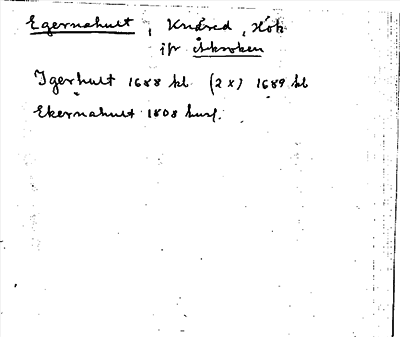 Egernahult, Knäred, Hök
ip Åkroken
Igerhult 1688 kl (2x) 1689 kl
Ekernahult 1808 husf.